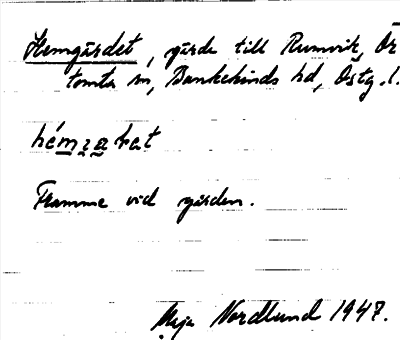 Hemgärdet, gärde till Runnvik, Ör
tomta sn, Bankekinds hd, Östg. l.
Framme vid gården.
Maja Nordlund 1947.